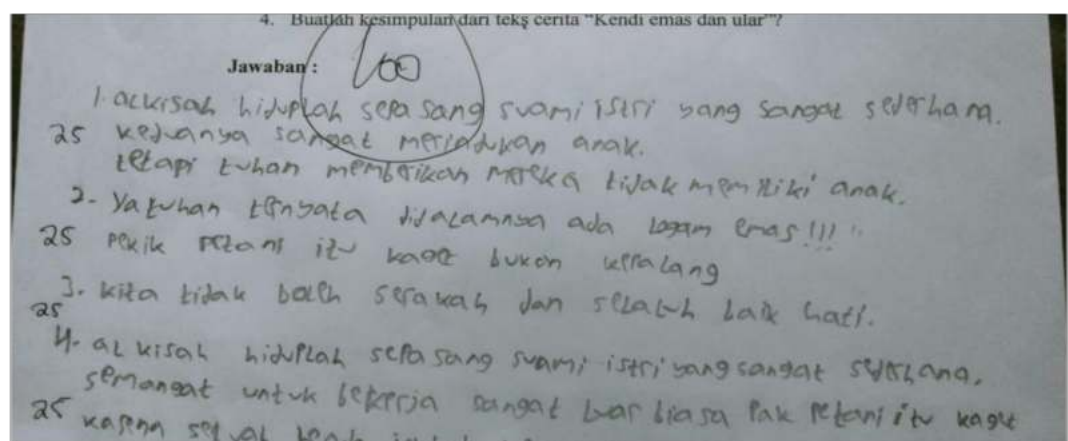 4. Buatlah kesimpulan dari teks cerita "Kendi emas dan ular"?
Jawaban :
100
1. alkisah hiduplah sepasang suami istri yang sangat sederhana.
25 keduanya sangat merindukan anak.
tetapi tuhan memberikan mereka tidak memiliki anak.
2. Ya tuhan ternyata didalamnya ada logam emas !!! "
25 pekik petani itu kaget bukan
3. kita tidak boleh serakah dan selaluh baik hati.
25
4. al kisah hiduplah sepasang suami istri yang sangat sederhana.
semangat untuk bekerja sangat luar biasa Pak Petani itu kaget
25 karena